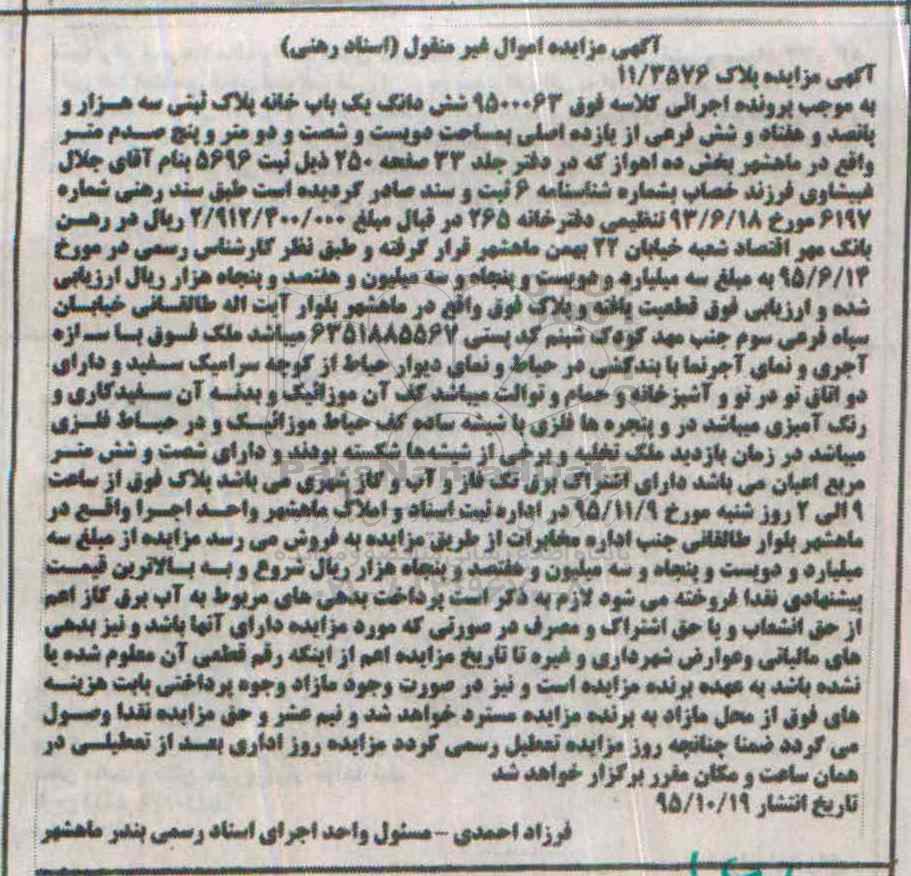 آگهی مزایده اموال غیر منقول (اسناد رهنی)
آگهی مزایده پلاک ۱۱/۳۵۷۶
به موجب پرونده اجرائی کلاسه فوق ۹۵۰۰۰۶۳ شش دانگ یک باب خانه پلاک ثبتی سه هزار و
پانصد و هفتاد و شش فرعی از یازده اصلی بمساحت دویست و شصت و دو متر و پنج صدم متر
واقع در ماهشهر بخش ده اهواز که در دفتر جلد ۳۳ صفحه ۲۵۰ ذیل ثبت ۵۶۹۶ بنام آقای جلال
غبیشاوی فرزند خصاب بشماره شناسنامه ۶ ثبت و سند صادر گردیده است طبق سند رهنی شماره
۶۱۹۷ مورخ ۹۳/۶/۱۸ تنظیمی دفترخانه ۲۶۵ در قبال مبلغ ۲/۹۱۲/۴۰۰/۰۰۰ ریال در رهن
بانک مهر اقتصاد شعبه خیابان ۲۲ بهمن ماهشهر قرار گرفته و طبق نظر کارشناس رسمی در مورخ
۹۵/۶/۱۴ به مبلغ سه میلیارد و دویست و پنجاه و سه میلیون و هفتصد و پنجاه هزار ریال ارزیابی
شده و ارزیابی فوق قطعیت یافته و پلاک فوق واقع در ماهشهر بلوار آیت اله طالقانی خیابان
سپاه فرعی سوم جنب مهد کودک شبنم کد پستی ۶۳۵۱۸۸۵۵۶۷ میباشد ملک فوق با سازه
آجری و نمای آجرنما با بندکشی در حیاط و نمای دیوار حیاط از کوچه سرامیک سفید و دارای
دو اتاق تو در تو و آشپزخانه و حمام و توالت میباشد کف آن موزائیک و بدنه آن سفیدکاری و
رنگ آمیزی میباشد در و پنجره ها فلزی با شیشه ساده کف حیاط موزائیک و در حیاط فلزی
میباشد در زمان بازدید ملک تخلیه و برخی از شیشه‌ها شکسته بودند و دارای شصت و شش متر
مربع اعیان می باشد دارای اشتراک برق تک فاز و آب و گاز شهری می باشد پلاک فوق از ساعت
۹ الی ۲ روز شنبه مورخ ۹۵/۱۱/۹ در اداره ثبت اسناد و املاک ماهشهر واحد اجرا واقع در
ماهشهر بلوار طالقانی جنب اداره مخابرات از طریق مزایده به فروش می رسد مزایده از مبلغ سه
میلیارد و دویست و پنجاه و سه میلیون و هفتصد و پنجاه هزار ریال شروع و به بالاترین قیمت
پیشنهادی نقدا فروخته می شود لازم به ذکر است پرداخت بدهی های مربوط به آب برق گاز اعم
از حق انشعاب و یا حق اشتراک و مصرف در صورتی که مورد مزایده دارای آنها باشد و نیز بدهی
های مالیاتی وعوارض شهرداری و غیره تا تاریخ مزایده اعم از اینکه رقم قطعی آن معلوم شده یا
نشده باشد به عهده برنده مزایده است و نیز در صورت وجود مازاد وجوه پرداختی بابت هزینه
های فوق از محل مازاد به برنده مزایده مسترد خواهد شد و نیم عشر و حق مزایده نقدا وصول
می گردد ضمنا چنانچه روز مزایده تعطیل رسمی گردد مزایده روز اداری بعد از تعطیلی در
همان ساعت و مکان مقرر برگزار خواهد شد
تاریخ انتشار ۹۵/۱۰/۱۹
فرزاد احمدی - مسئول واحد اجرای اسناد رسمی بندر ماهشهر
ParsNamadData